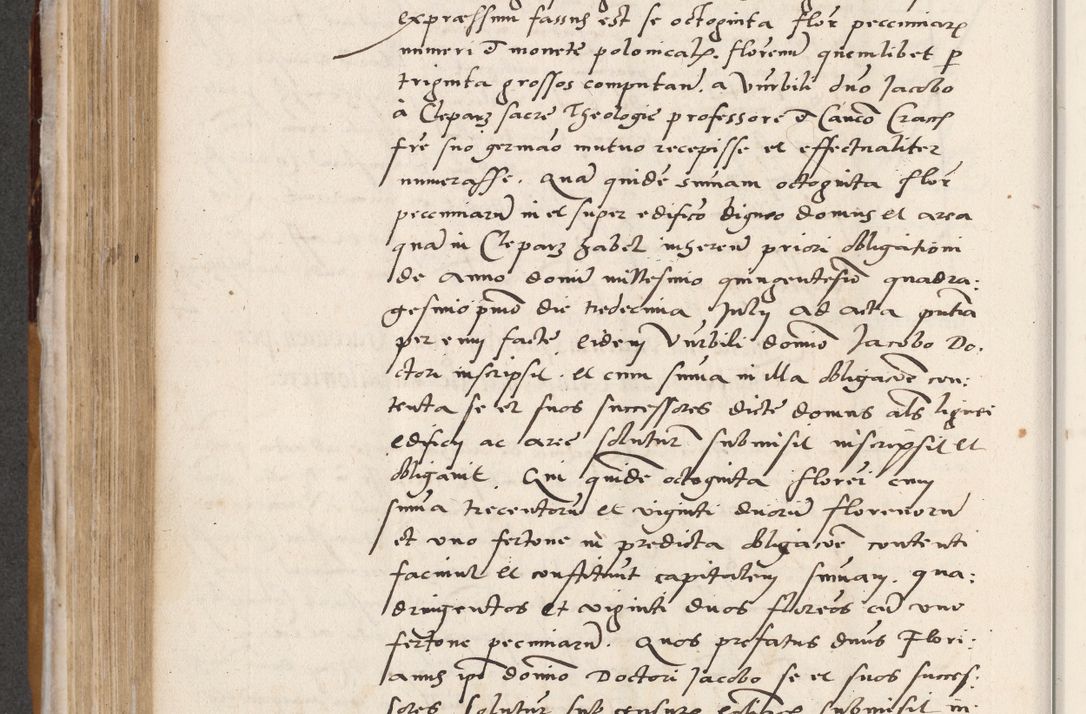 expræssum fassus est se octoginta flor pecuniarꝝ
numeri et monete polonicalꝝ florenum quemlibet p
triginta grossos computan. a Vnrbili dno Jacobo
à Cleparz sacre Theologie professore et Canco Cracꝫ
fre suo germão mutuo recepisse et effectualiter
numerasse. Quã quidẽ sumam octoginta flor
pecuniarũ in et super edificio ligneo domus et area
quã in Cleparz habet inheren priori obligationi
de anno domĩ millesimo quingentesĩo quadra:
gesimo pmo die tredecima Julij ad acta pntia
per eum facte eidem Vnrbili domio Jacobo Do.
ctori inscripsit. et cum suma in illa obligacõe con:
tenta se et suos successores dicte domus als lignei
edificij ac aree soluturũ submisit inscripsit et
obligauit. Qui quidẽ octoginta florei cum
suma trecentorũ et viginti duorũ florenorũ
et vno fertone in predicta obligacõe contenti
faciunt et constituũt capitalem sumam. qua:
dringentos et viginti duos floreos cũ vno
fertone pecuniarũ. Quos prefatus dnus Flori:
anus ipi domio Doctori Jacobo se et suos succes:
sores solutur sub censurꝫ submisit in